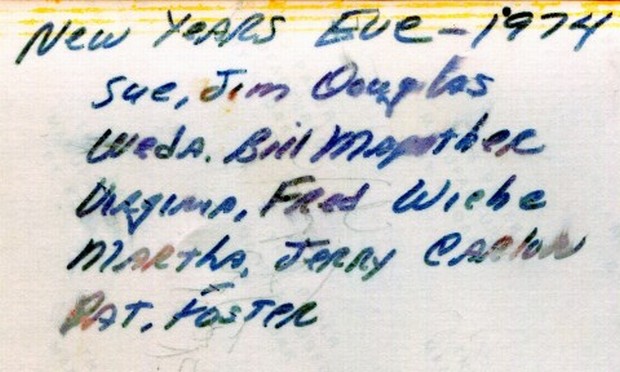 New Years Eve - 1974
Sue, Jim Douglas
Weda. Bill Mapother
Virginia, Fred Wiebe
Martha, Jerry Carlow
Pat, Foster